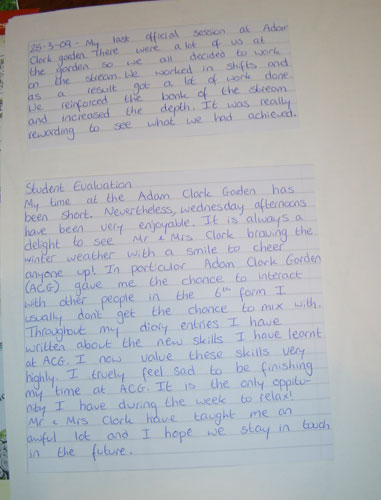 25-3-09 - My last official session at Adam
Clark garden. There were a lot of us at
the garden so we all decided to work
on the stream. We worked in shifts and
as a result got a lot of work done.
We reinforced the bank of the stream
and increased the depth. It was really
rewarding to see what we had achieved.
Student Evaluation
My time at the Adam Clark Gaden has
been short. Nevertheless, wednesday afternoons
have been very enjoyable. It is always a
delight to see Mr & Mrs Clark braving the
winter weather with a smile to cheer
anyone up! In particular Adam Clark Garden
(ACG) gave me the chance to interact
with other people in the 6th form I
usually don't get the chance to mix with.
Throughout my diary entries I have
written about the new skills I have learnt
at ACG. I now value these skills very
highly. I truely feel sad to be finishing
my time at ACG. It is the only oppitu-
nity I have during the week to relax!
Mr & Mrs Clark have taught me an
awful lot and I hope we stay in touch
in the future.